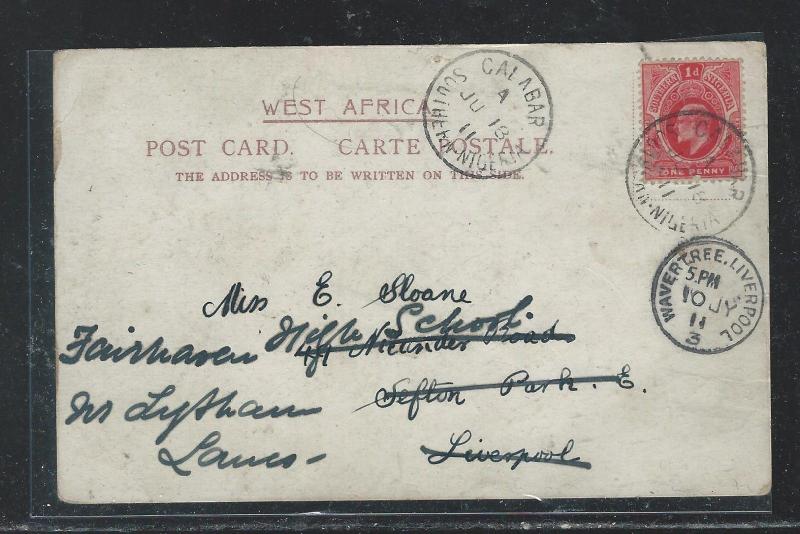 WEST AFRICA
POST CARD. CARTE POSTALE.
THE ADDRESS IS TO BE WRITTEN ON THIS SIDE.
CALABAR
A
JU 18
11
SOUTHERN-NIGERIA
1d
SOUTHERN NIGERIA
ONE PENNY
WAVERTREE. LIVERPOOL
5.PM
10 JY
11
3
Miss E. Sloane
High School
Road
Fairhaven
Sefton Park. E.
Nr Lytham
Liverpool
Lancs-